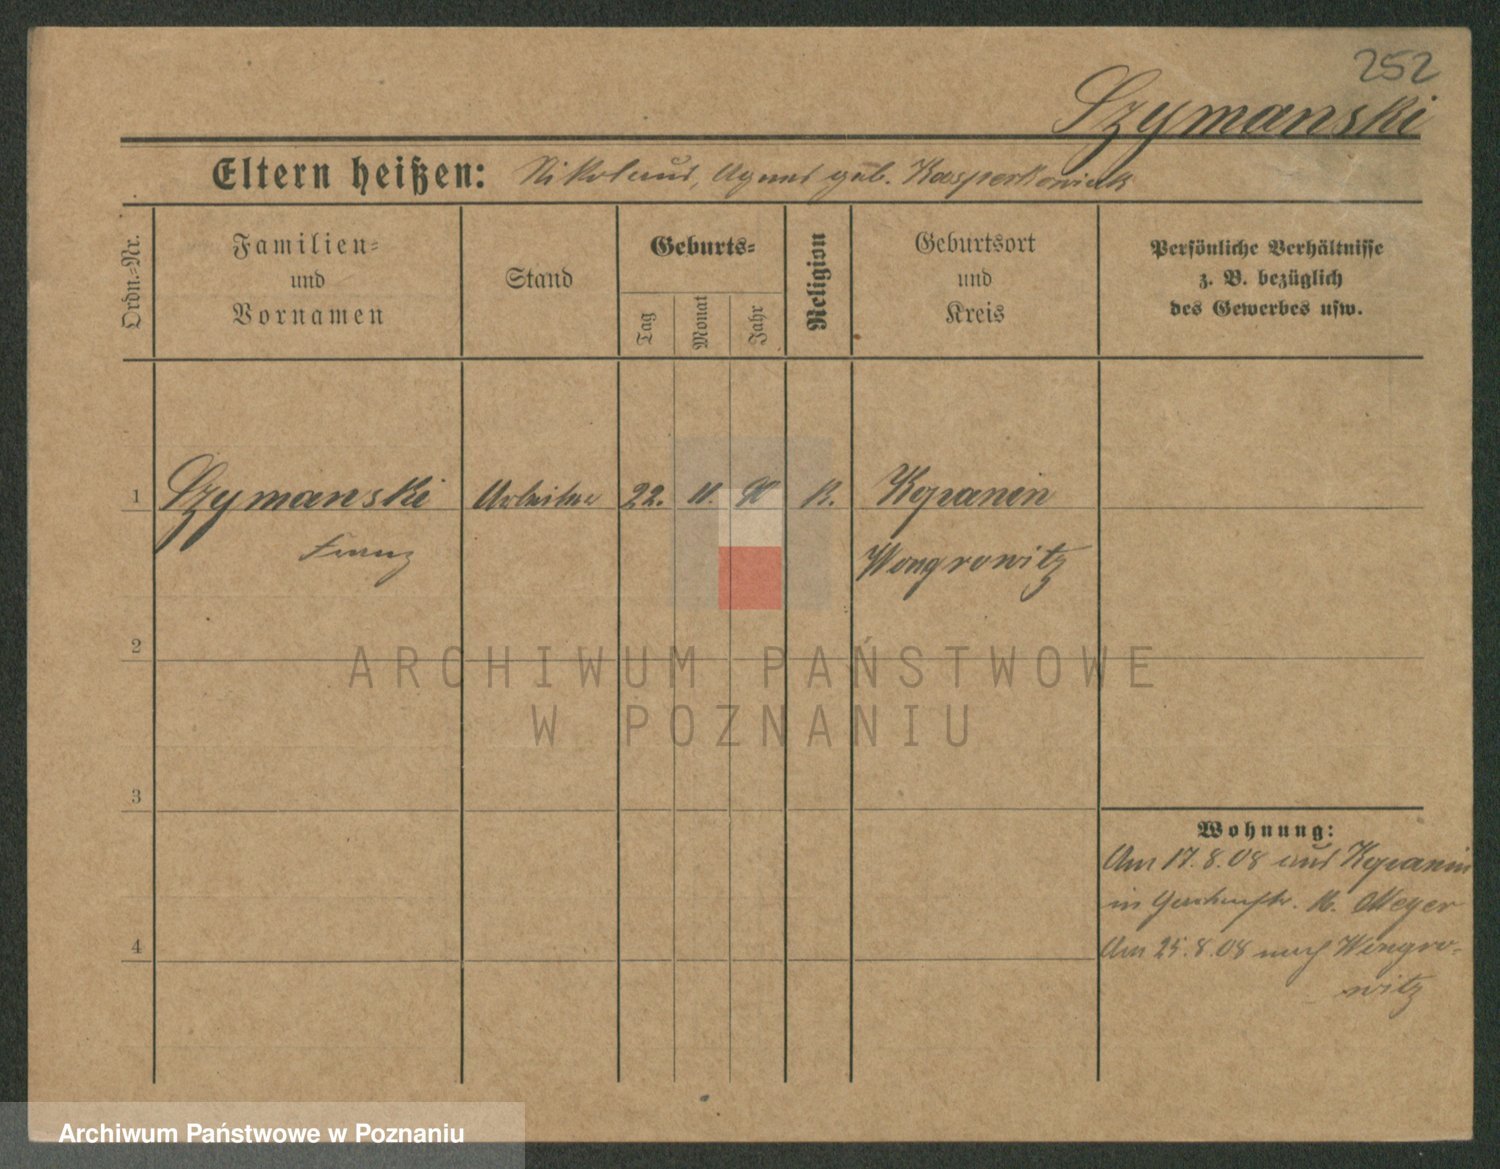 252
Szymanski
Eltern heißen: Nikolaus, Agnes geb. Kasperkowiak
Ordn.-Nr.
Familien-
und
Vornamen
Stand
Geburts-
Tag
Monat
Jahr
Religion
Geburtsort
und
Kreis
Persönliche Verhältnisse
z. B. bezüglich
des Gewerbes usw.
1 Szymanski Arbeiter 22. 11. 90 K.
Franz Wongrowitz
2
ARCHIWUM PAŃSTWOWE
W POZNANIU
3
Wohnung:
Am 17.8.08 aus
in K. Meyer
4
Am 25.8.08 nach Wongro-
witz
Archiwum Państwowe w Poznaniu